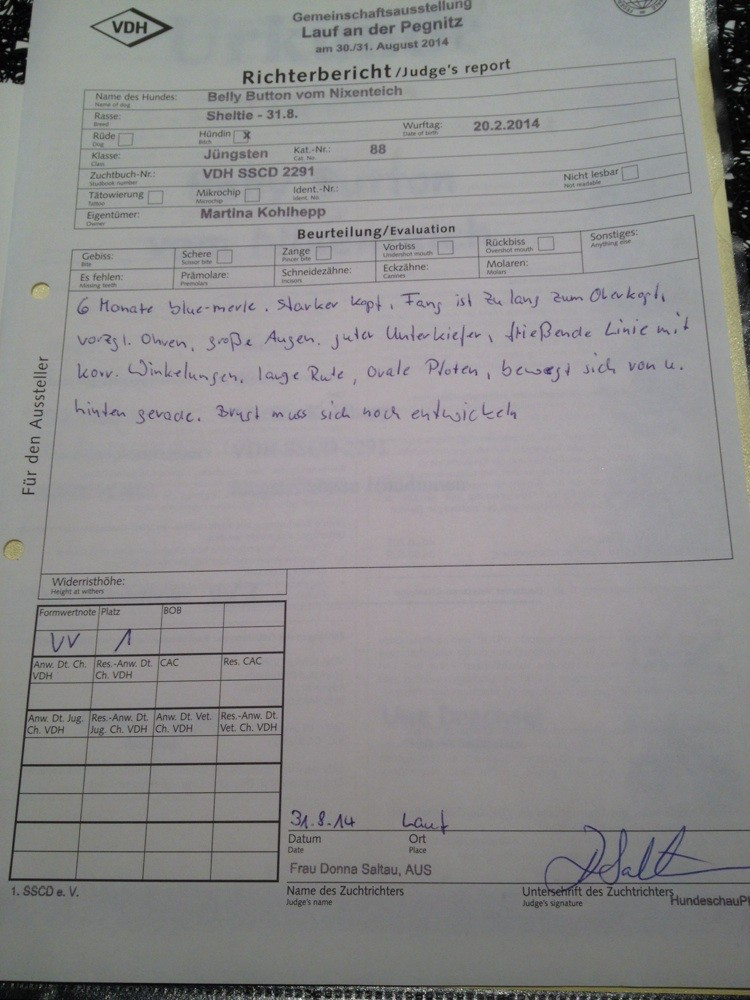 VDH
Gemeinschaftsausstellung
Lauf an der Pegnitz
am 30./31. August 2014
Richterbericht/Judge's report
Name des Hundes: Belly Button vom Nixenteich
Name of dog
Rasse: Sheltie - 31.8.
Breed
Rüde Hündin X Wurftag: 20.2.2014
Dog Bitch Date of birth
Klasse: Jüngsten Kat.-Nr.: 88
Class Cat. No.
Zuchtbuch-Nr.: VDH SSCD 2291
Studbook number
Tätowierung Mikrochip Ident.-Nr.: Nicht lesbar
Tattoo Microchip Ident. No. Not readable
Eigentümer: Martina Kohlhepp
Owner
Beurteilung/Evaluation
Gebiss: Schere Zange Vorbiss Rückbiss Sonstiges:
Bite Scissor bite Pincer bite Undershot mouth Overshot mouth Anything else
Es fehlen: Prämolare: Schneidezähne: Eckzähne: Molaren:
Missing teeth Premolars Incisors Canines Molars
6 Monate blue-merle. Starker Kopf, Fang ist zu lang zum Oberkopf,
vorzgl. Ohren, große Augen, guter Unterkiefer, fließende Linie mit
korr. Winkelungen, lange Rute, ovale Pfoten, bewegt sich von u.
hinten gerade. Brust muss sich noch entwickeln
Für den Aussteller
Widerristhöhe:
Height at withers
Formwertnote Platz BOB
VV 1
Anw. Dt. Ch. VDH Res.-Anw. Dt. Ch. VDH CAC Res. CAC
Anw. Dt. Jug. Ch. VDH Res.-Anw. Dt. Jug. Ch. VDH Anw. Dt. Vet. Ch. VDH Res.-Anw. Dt. Vet. Ch. VDH
31.8.14 Lauf
Datum Ort
Date Place
Frau Donna Saltau, AUS
Name des Zuchtrichters Unterschrift des Zuchtrichters
Judge's name Judge's signature
1. SSCD e. V.
HundeschauPl